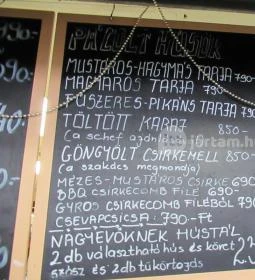 PÁCOLT HÚSOK
MUSTÁROS-HAGYMÁS TARJA 790-
MAGYAROS TARJA 790-
FŰSZERES-PIKÁNS TARJA 790-
TÖLTÖTT KARAJ 850-
(a schef ajánlja)
GÖNGYÖLT CSIRKEMELL 850-
(a szakács megmondja)
MÉZES-MUSTÁROS CSIRKE 690-
BBQ CSIRKECOMB FILÉ 690-
GYROS CSIRKECOMB FILÉBŐL 790-
CSEVAPCSICSA: 790-Ft
NAGYEVŐKNEK HÚSTÁL
2 db választható hús és köret
szósz és 2db tükörtojás